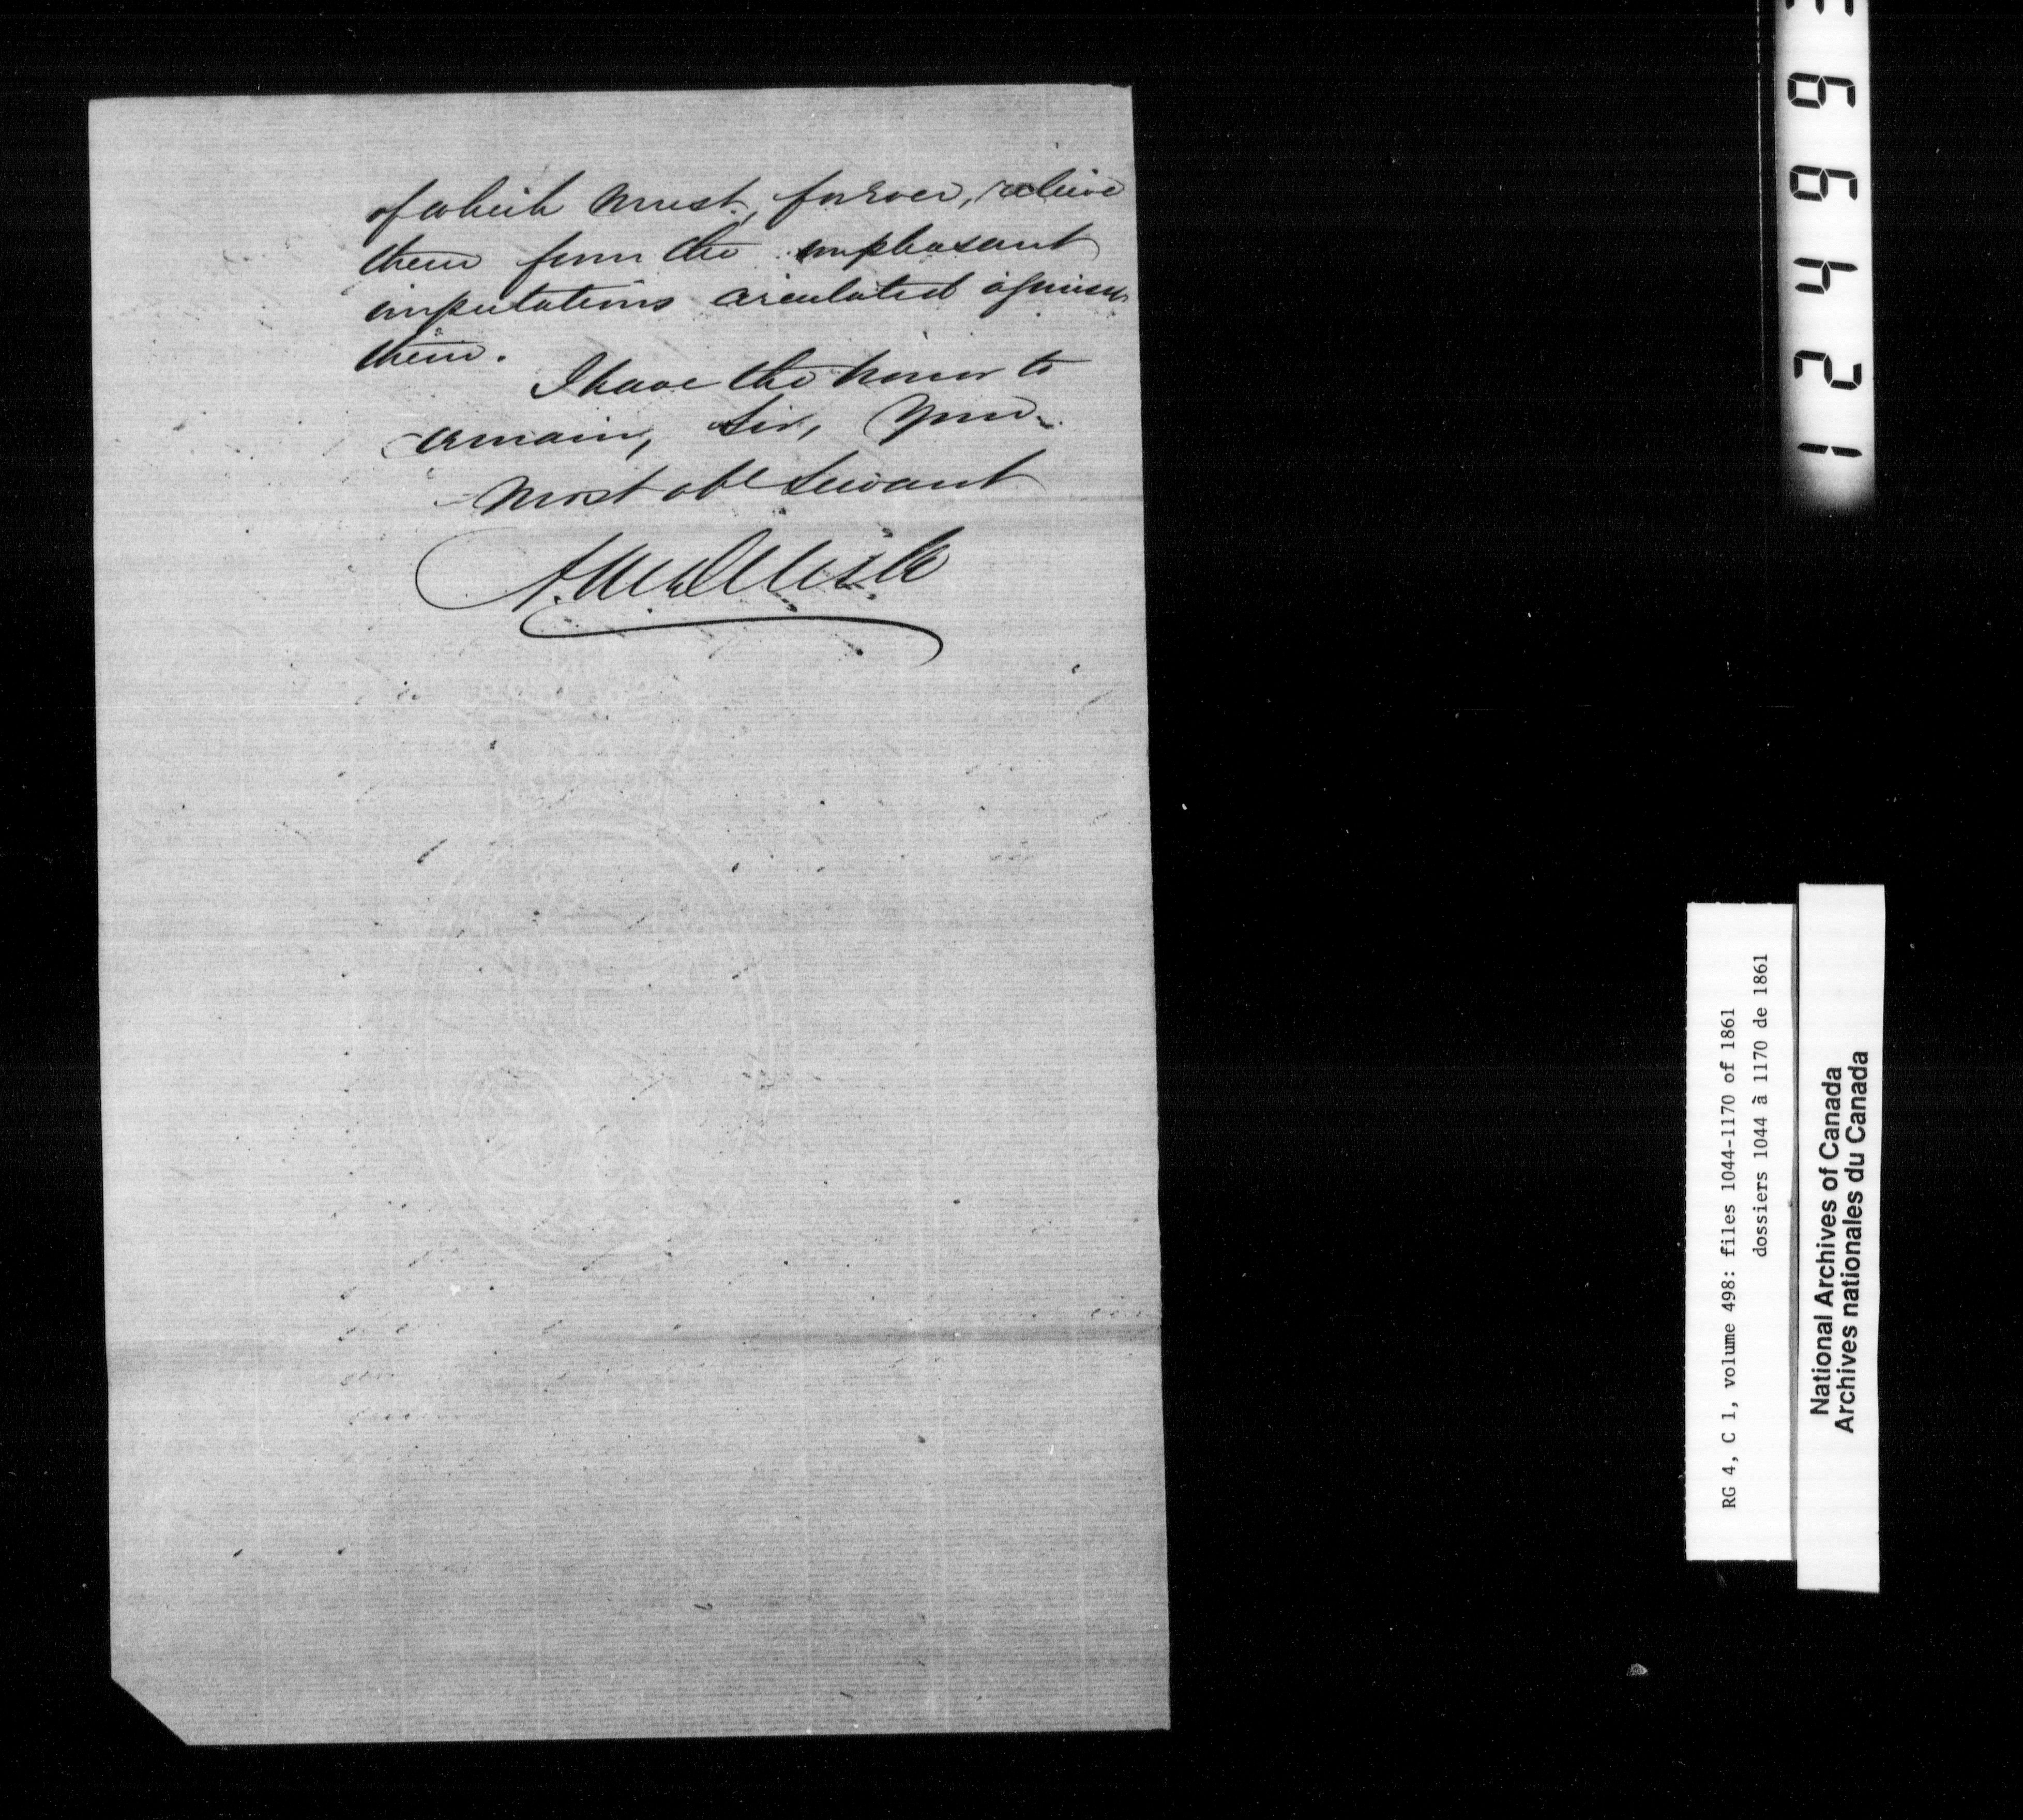 of which must, forever, relieve
them from the unpleasant
imputations circulated against
them.
I have the honor to
remain, Sir, Your
most obt Servant
A. M. Delisle
124993
RG 4, C 1, volume 498: files 1044-1170 of 1861
dossiers 1044 à 1170 de 1861
National Archives of Canada
Archives nationales du Canada